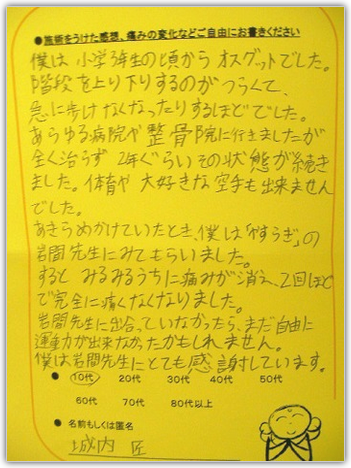 ●施術をうけた感想、痛みの変化などご自由にお書きください
僕は小学3年生の頃からオスグットでした。
階段を上り下りするのがつらくて、
急に歩けなくなったりするほどでした。
あらゆる病院や整骨院に行きましたが
全く治らず2年ぐらいその状態が続き
ました。体育や大好きな空手も出来ません
でした。
あきらめかけていたとき、僕は「やすらぎ」の
岩間先生にみてもらいました。
するとみるみるうちに痛みが消え、2回ほど
で完全に痛くなくなりました。
岩間先生に出会っていなかったら、まだ自由に
運動が出来なかったかもしれません。
僕は岩間先生にとても感謝しています。
● 10代 20代 30代 40代 50代
60代 70代 80代以上
● 名前もしくは匿名
城内 匠